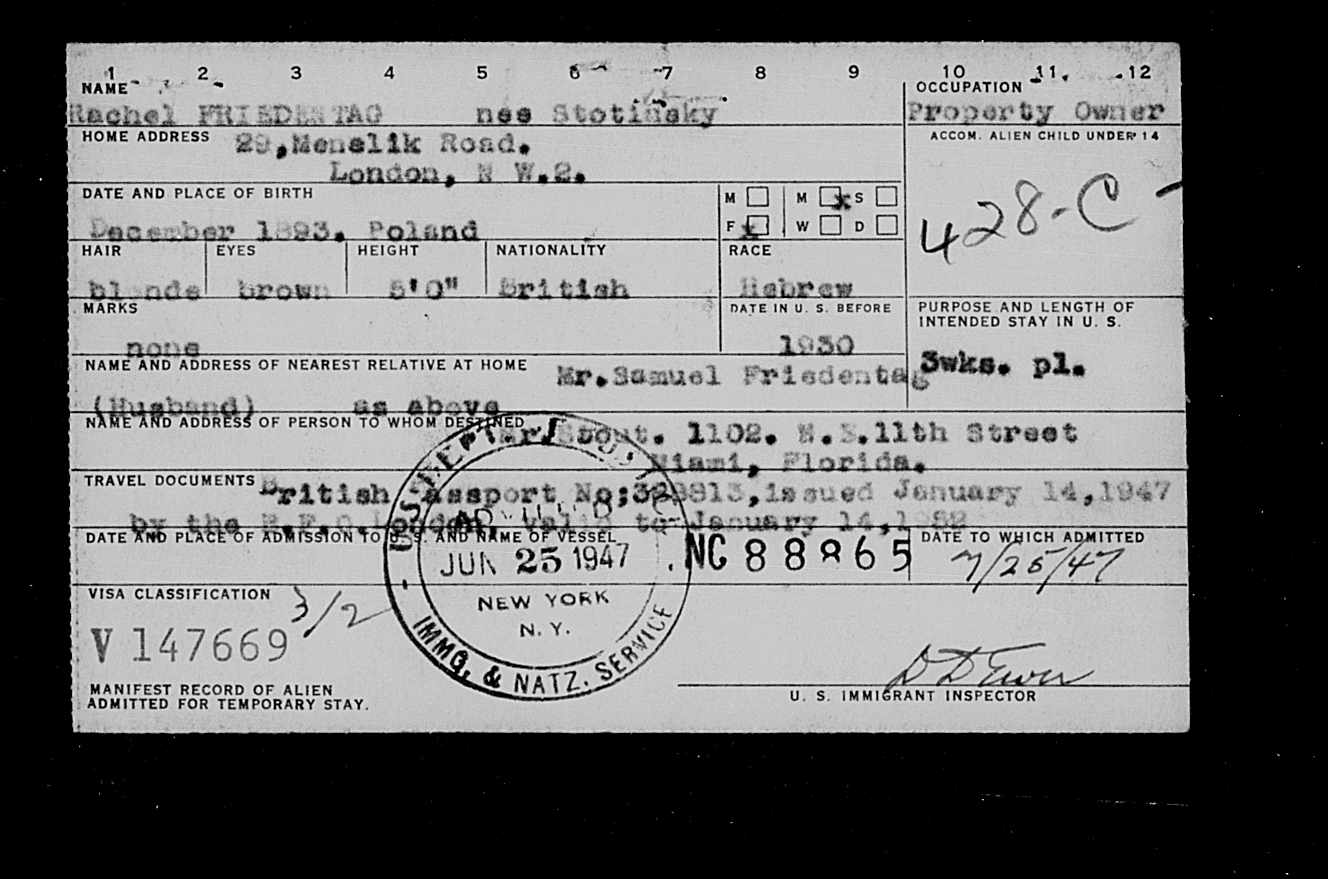 1 2 3 4 5 6 7 8 9 10 11 12
NAME
Rachel FRIEDENTAG nee Stotinsky
OCCUPATION
Property Owner
HOME ADDRESS 29,Menelik Road.
London, N W.2.
ACCOM. ALIEN CHILD UNDER 14
428-C
DATE AND PLACE OF BIRTH
December 1893. Poland
M M x S
F x W D
HAIR EYES HEIGHT NATIONALITY RACE
blonde brown 5'0" British Hebrew
MARKS
none
DATE IN U. S. BEFORE
1930
PURPOSE AND LENGTH OF
INTENDED STAY IN U. S.
3wks. pl.
NAME AND ADDRESS OF NEAREST RELATIVE AT HOME Mr.Samuel Friedentag
(Husband) as above
NAME AND ADDRESS OF PERSON TO WHOM DESTINED Mr. Stout. 1102. 11th Street
Miami, Florida.
TRAVEL DOCUMENTS British Passport No; issued January 14,1947
by the London, Valid to January 14,1952
DATE AND PLACE OF ADMISSION TO U. S. AND NAME OF VESSEL
ADMITTED
JUN 25 1947
NEW YORK
N. Y.
IMMG. & NATZ. SERVICE
NC 88865
DATE TO WHICH ADMITTED
7/25/47
VISA CLASSIFICATION 3/2
V 147669
MANIFEST RECORD OF ALIEN
ADMITTED FOR TEMPORARY STAY.
U. S. IMMIGRANT INSPECTOR